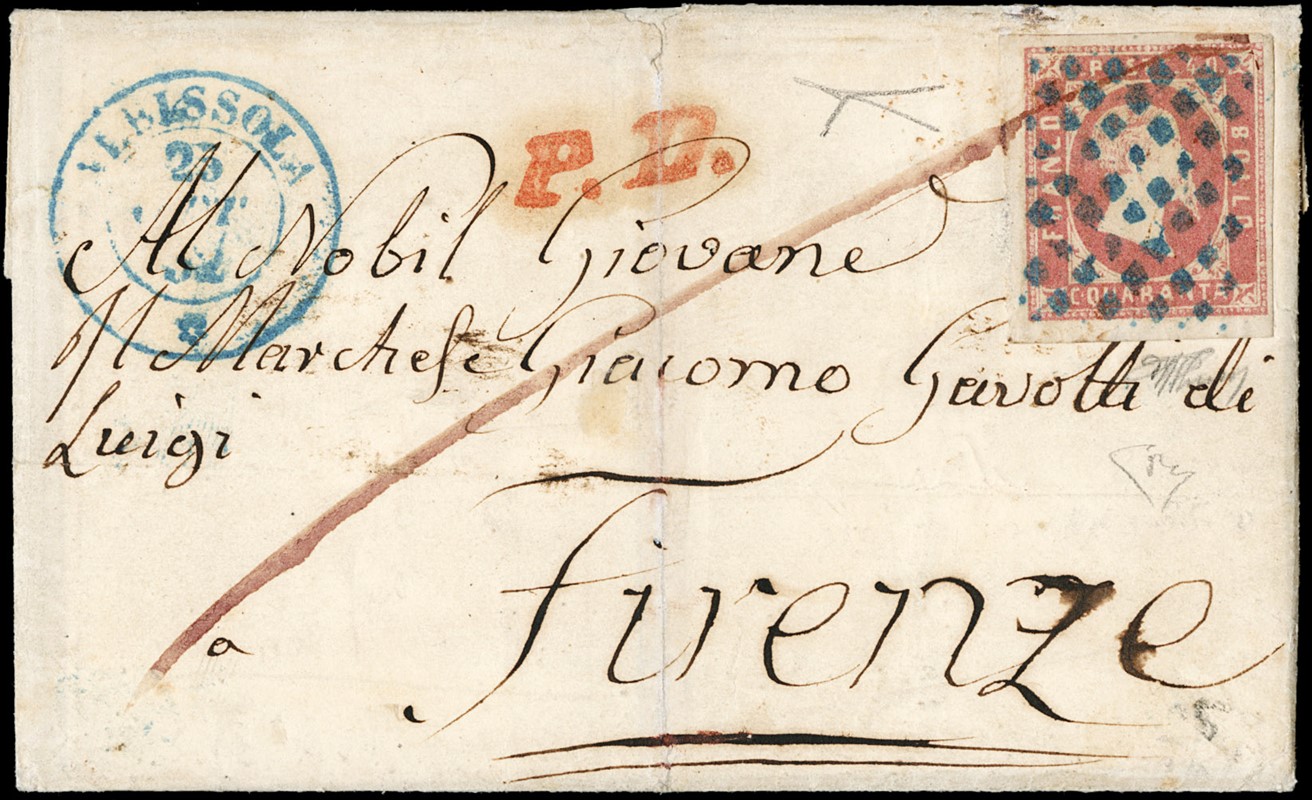 ALBISSOLA
23
52
P. D.
FRANCO BOLLO
C. QUARANTA
Al Nobil Giovane
Il Marchese Giacomo Gavotti di
Luigi
a
Firenze